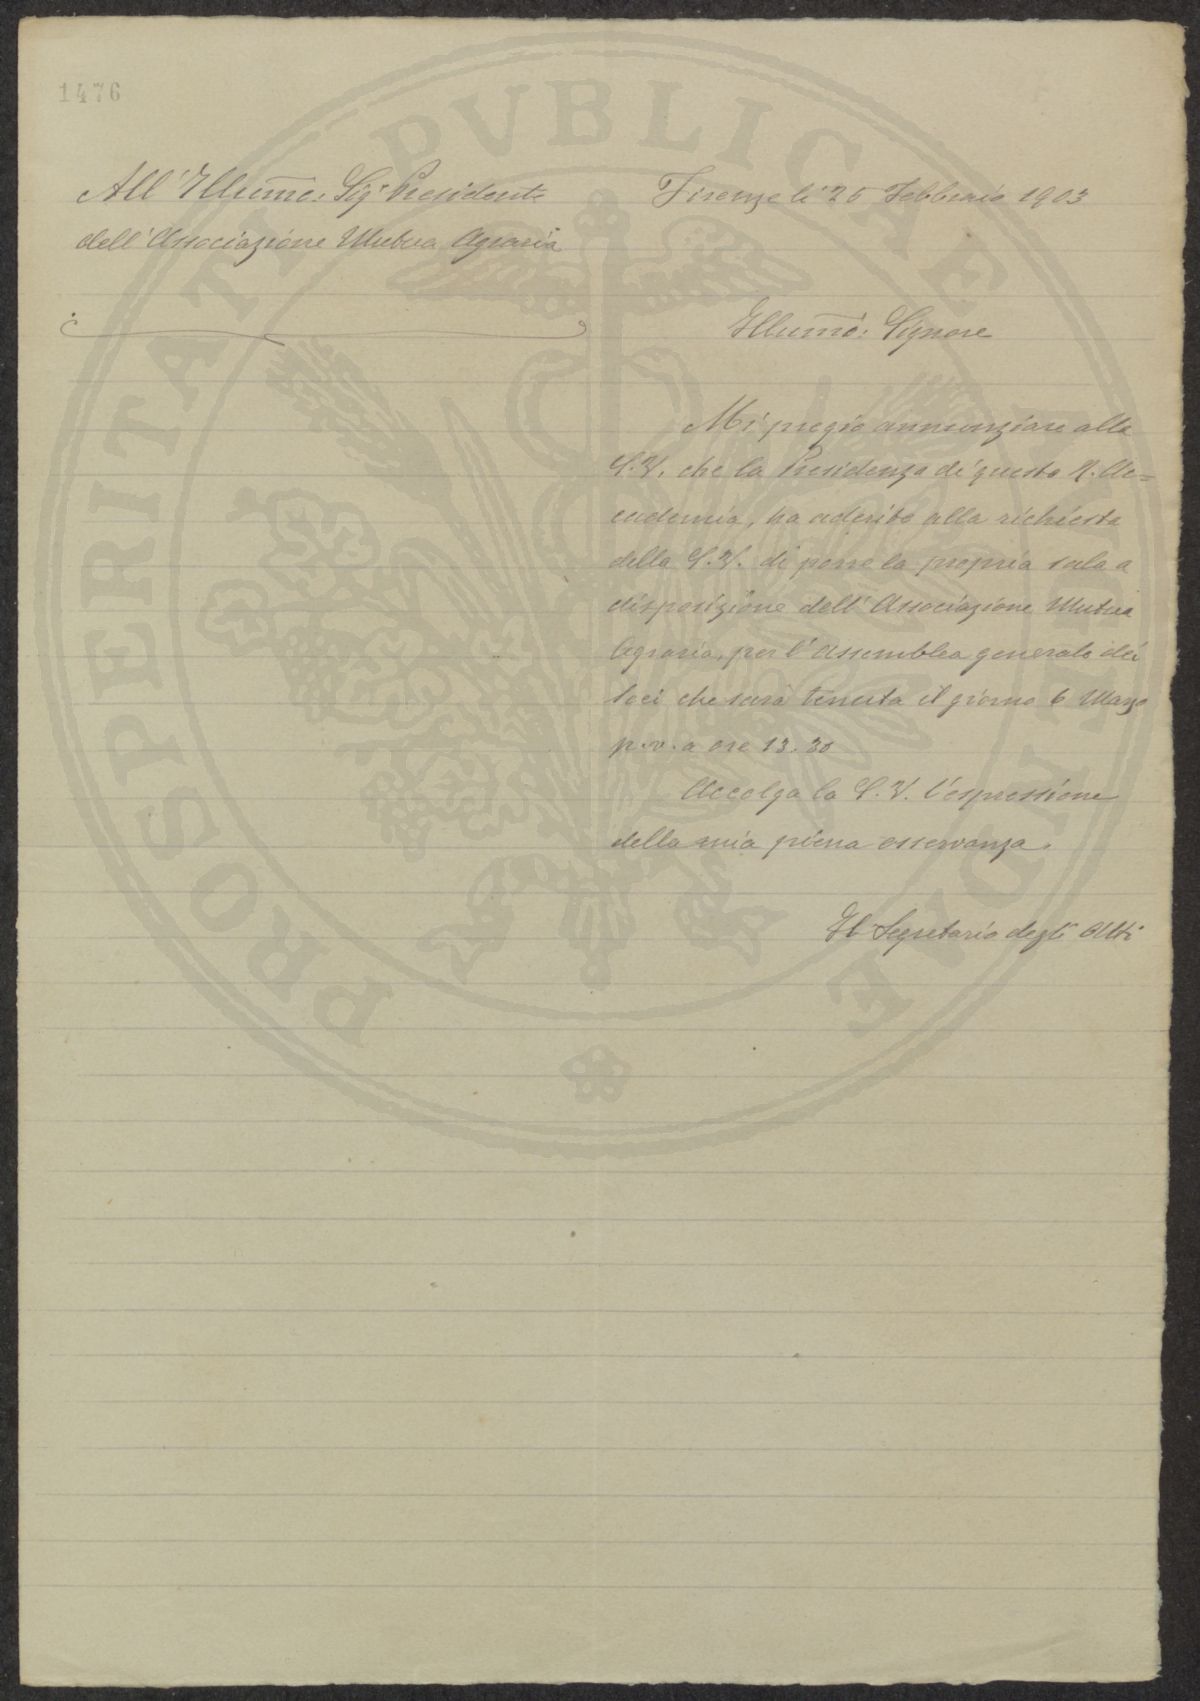 1476
All'Illumo: Sigr Presidente
dell'Associazione Mutua Agraria
Firenze li 26 Febbraio 1903
Illumo: Signore
Mi pregio annunziare alla
S.V. che la Presidenza di questa R. Ac=
cademia, ha aderito alla richiesta
della S.V. di porre la propria sala a
disposizione dell'Associazione Mutua
Agraria, per l'Assemblea generale dei
Soci che sarà tenuta il giorno 6 Marzo
p.v. a ore 13.30
Accolga la S.V. l'espressione
della mia piena osservanza.
Il Segretario degli Atti
PROSPERITATI PVBLICAE AVGENDAE